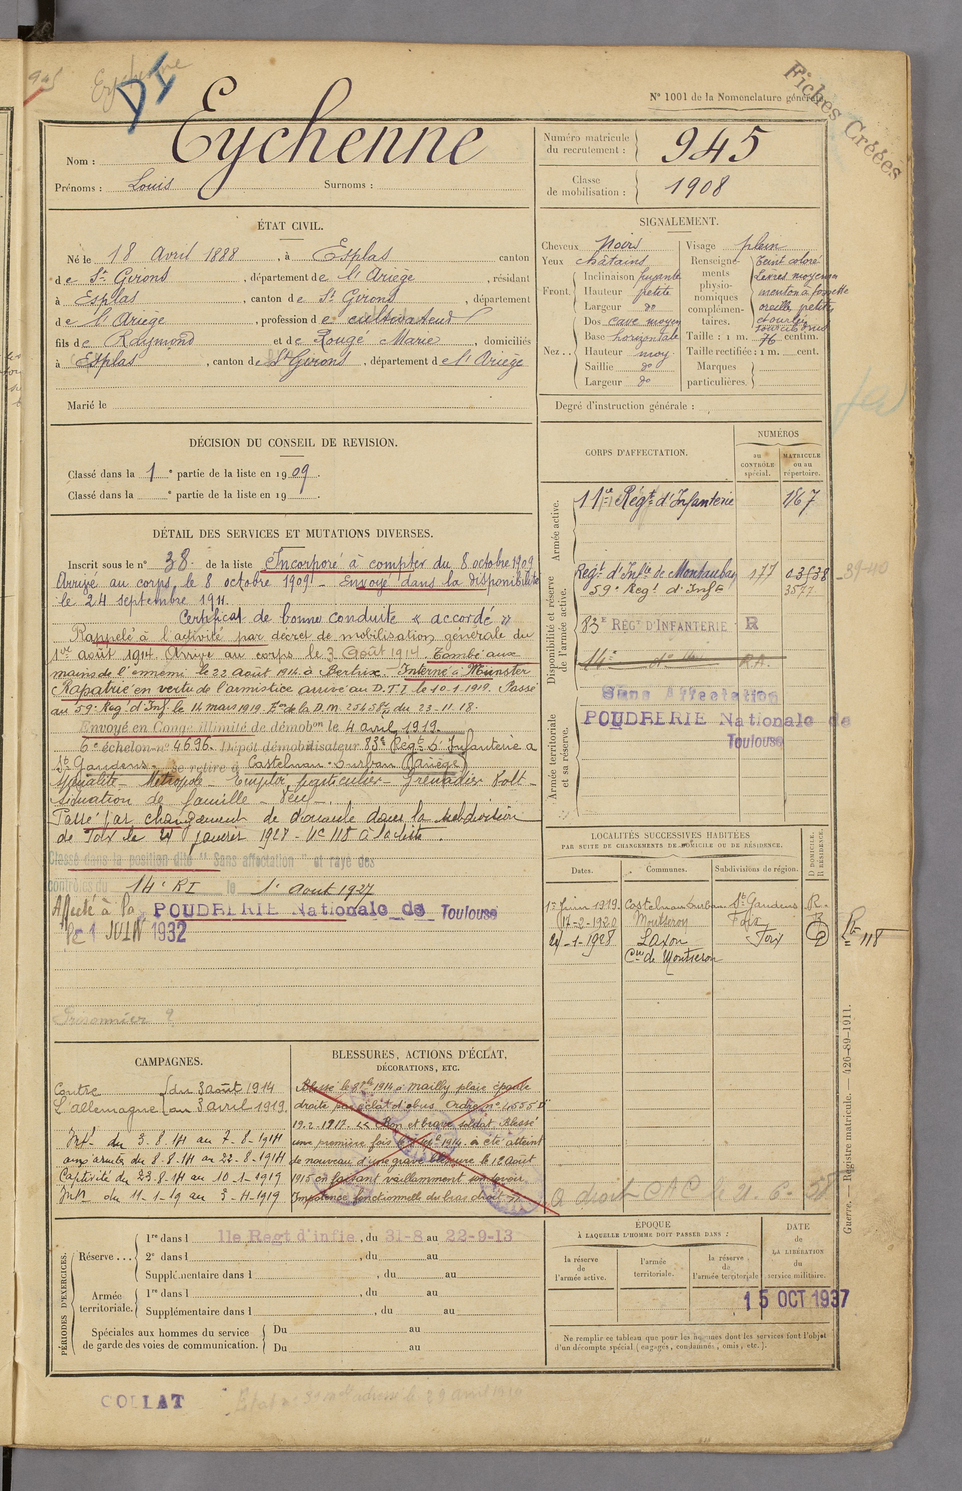 945
Eychenne
DI
N° 1001 de la Nomenclature générale.
Fiches Créées
Nom : Eychenne
Prénoms : Louis Surnoms :
Numéro matricule du recrutement : 945
Classe de mobilisation : 1908
ÉTAT CIVIL.
Né le 18 Avril 1888, à Esplas canton
de St Girons, département de l'Ariège, résidant
à Esplas, canton de St Girons, département
de l'Ariège, profession de cultivateur
fils de Raymond et de Rouge Marie, domiciliés
à Esplas, canton de St Girons, département de l'Ariège
Marié le
SIGNALEMENT.
Cheveux Noirs
Yeux châtains
Front. Inclinaison fuyante
Hauteur petite
Largeur do
Nez . . Dos cave moyen
Base horizontale
Hauteur moy.
Saillie do
Largeur do
Visage plein
Renseignements physionomiques complémentaires.
Teint coloré
Lèvres moyennes
menton à fossette
oreille petite
et ourlée
sourcils drus
Taille : 1 m. 76 centim.
Taille rectifiée : 1 m. cent.
Marques particulières.
Degré d'instruction générale :
DÉCISION DU CONSEIL DE REVISION.
Classé dans la 1e partie de la liste en 1909.
Classé dans la e partie de la liste en 19 .
DÉTAIL DES SERVICES ET MUTATIONS DIVERSES.
Inscrit sous le n° 38 de la liste Incorporé à compter du 8 octobre 1909
Arrivé au corps le 8 octobre 1909 - Envoyé dans la disponibilité
le 24 septembre 1911.
Certificat de bonne conduite « accordé »
Rappelé à l'activité par décret de mobilisation générale du
1er août 1914 Arrivé au corps le 3 Août 1914. Tombé aux
mains de l'ennemi le 22 août 1914 à Bertrix. Interné à Munster
Rapatrié en vertu de l'armistice arrivé au D.T.I. le 10-1-1919. Passé
au 59e Rég. d'Inf. le 14 mars 1919. du 23-11-18.
Envoyé en Congé illimité de démobon le 4 avril 1919.
6e échelon n° 4696. Dépôt démobilisateur 83e Régt d'Infanterie à
St Gaudens se retire à Castelnau-Durban (Ariège)
Spécialité - Métropole - Emploi particulier - Grenadier Volt -
Situation de famille - Veuf -
Passé par changement de domicile dans la subdivision
de Foix le 24 janvier 1928 - N° 118 à la liste.
Classé dans la position dite "Sans affectation" et rayé des
contrôles du 14e RI le 1er Août 1927
Affecté à la POUDRERIE Nationale de Toulouse
le 1 JUIN 1932
Prisonnier ?
CORPS D'AFFECTATION.
NUMÉROS
au CONTRÔLE spécial.
MATRICULE ou au répertoire.
Armée active.
11e Régt d'Infanterie 1867
Disponibilité et réserve de l'armée active.
Régt d'Infie de Montauban 177 03538
39-40
59e Régt d'Infie 3577
83e RÉGt D'INFANTERIE R
14e R.A.
Armée territoriale et sa réserve.
Sans Affectation
POUDRERIE Nationale de
Toulouse
LOCALITÉS SUCCESSIVES HABITÉES
PAR SUITE DE CHANGEMENTS DE DOMICILE OU DE RÉSIDENCE.
Dates. Communes. Subdivisions de région. D DOMICILE. R RÉSIDENCE.
1er Juin 1919 Castelnau-Durban St Gaudens R
17-2-1920 Montseron Foix R
24-1-1928 Laxon Foix D
Cne de Montseron
118
CAMPAGNES.
Contre du 3 août 1914
L'allemagne au 3 avril 1919.
Intr du 3-8-14 au 7-8-1914
aux armées du 8-8-14 au 22-8-1914
Captivité du 23-8-14 au 10-1-1919
Intr du 11-1-19 au 3-4-1919
BLESSURES, ACTIONS D'ÉCLAT,
DÉCORATIONS, ETC.
Blessé le 1914 à Mailly plaie épaule
droite par éclat d'obus. Ordre n° 1555 D
19.2.1917. Bon et brave soldat. Blessé
une première fois le 1914. a été atteint
de nouveau d'une grave blessure le 12 août
1915 en faisant vaillamment son devoir.
Impotence fonctionnelle du bras droit
a droit CAP le 21-6-58
PÉRIODES D'EXERCICES.
Réserve . . . 1re dans l 11e Regt d'infie, du 31-8 au 22-9-13
2e dans l , du au
Supplémentaire dans l , du au
Armée territoriale. 1re dans l , du au
Supplémentaire dans l , du au
Spéciales aux hommes du service de garde des voies de communication. Du au
Du au
ÉPOQUE
À LAQUELLE L'HOMME DOIT PASSER DANS :
la réserve de l'armée active.
l'armée territoriale.
la réserve de l'armée territoriale
DATE DE LA LIBÉRATION du service militaire.
15 OCT 1937
Ne remplir ce tableau que pour les hommes dont les services font l'objet
d'un décompte spécial (engagés, condamnés, omis, etc.).
Guerre. — Registre matricule. — 426-89-1911.
COLLAT